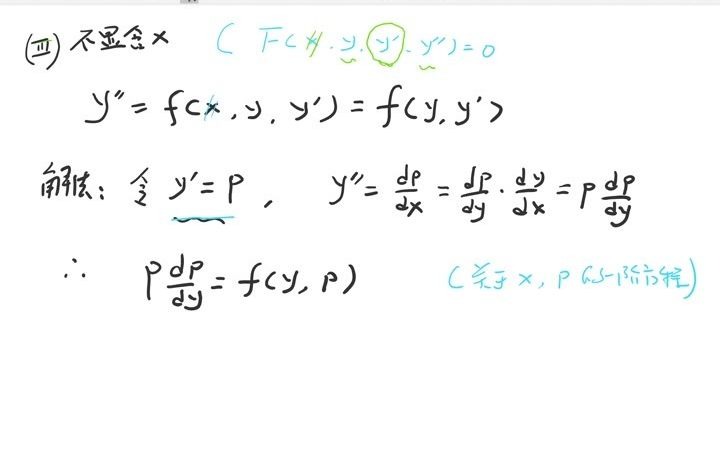 (Ⅲ) 不显含x ( F(x, y, y', y'') = 0
y'' = f(x, y, y') = f(y, y')
解法: 令 y' = p , y'' = dp/dx = dp/dy · dy/dx = p dp/dy
∴ p dp/dy = f(y, p) (关于 x, p 的一阶方程)